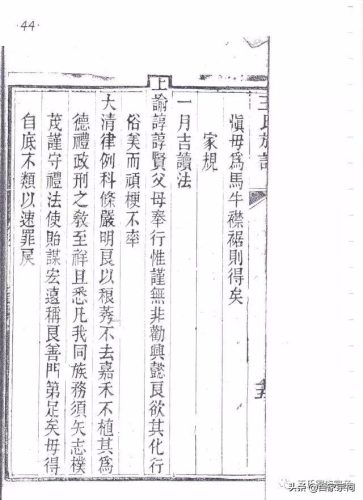 44
王氏族譜
慎毋為馬牛襟裾則得矣
家規
一月吉讀法
上諭諄諄賢父母奉行惟謹無非勸興懿良欲其化行
俗美而頑梗不率
大清律例科條嚴明良以稂莠不去嘉禾不植其為
德禮政刑之教至詳且悉凡我同族務須矢志樸
茂謹守禮法使貽謀宏遠稱良善門第足矣毋得
自底不類以速罪戾
头条 @百家宗祠